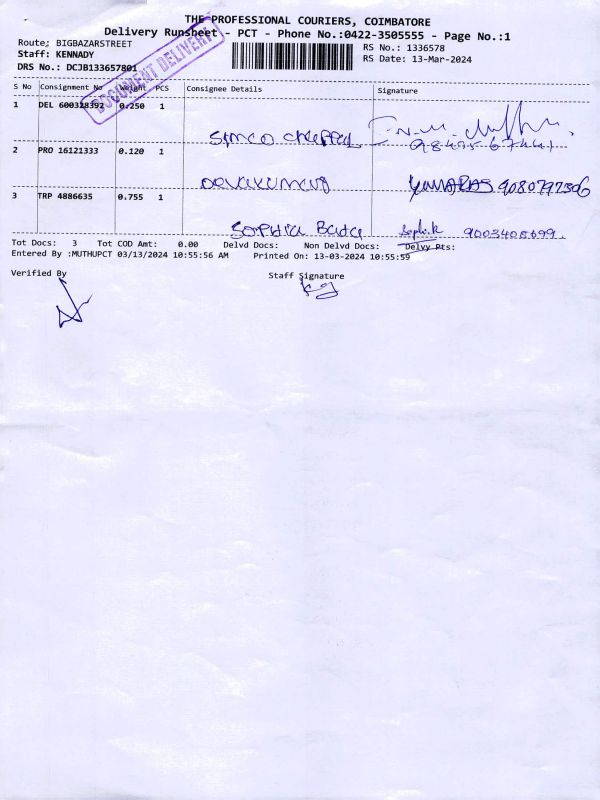 THE PROFESSIONAL COURIERS, COIMBATORE
Delivery Runsheet - PCT - Phone No.:0422-3505555 - Page No.:1
Route; BIGBAZARSTREET
Staff: KENNADY
DRS No.: DCJB133657801
RS No.: 1336578
RS Date: 13-Mar-2024
DOCUMENT DELIVERY
S No Consignment No Weight PCS Consignee Details Signature
1 DEL 600328392 0.250 1
2 PRO 16121333 0.120 1 Devakumar 9080797506
3 TRP 4886635 0.755 1 Sophia 9003405699
Tot Docs: 3 Tot COD Amt: 0.00 Delvd Docs: Non Delvd Docs: Delvy Pts:
Entered By :MUTHUPCT 03/13/2024 10:55:56 AM Printed On: 13-03-2024 10:55:59
Verified By Staff Signature